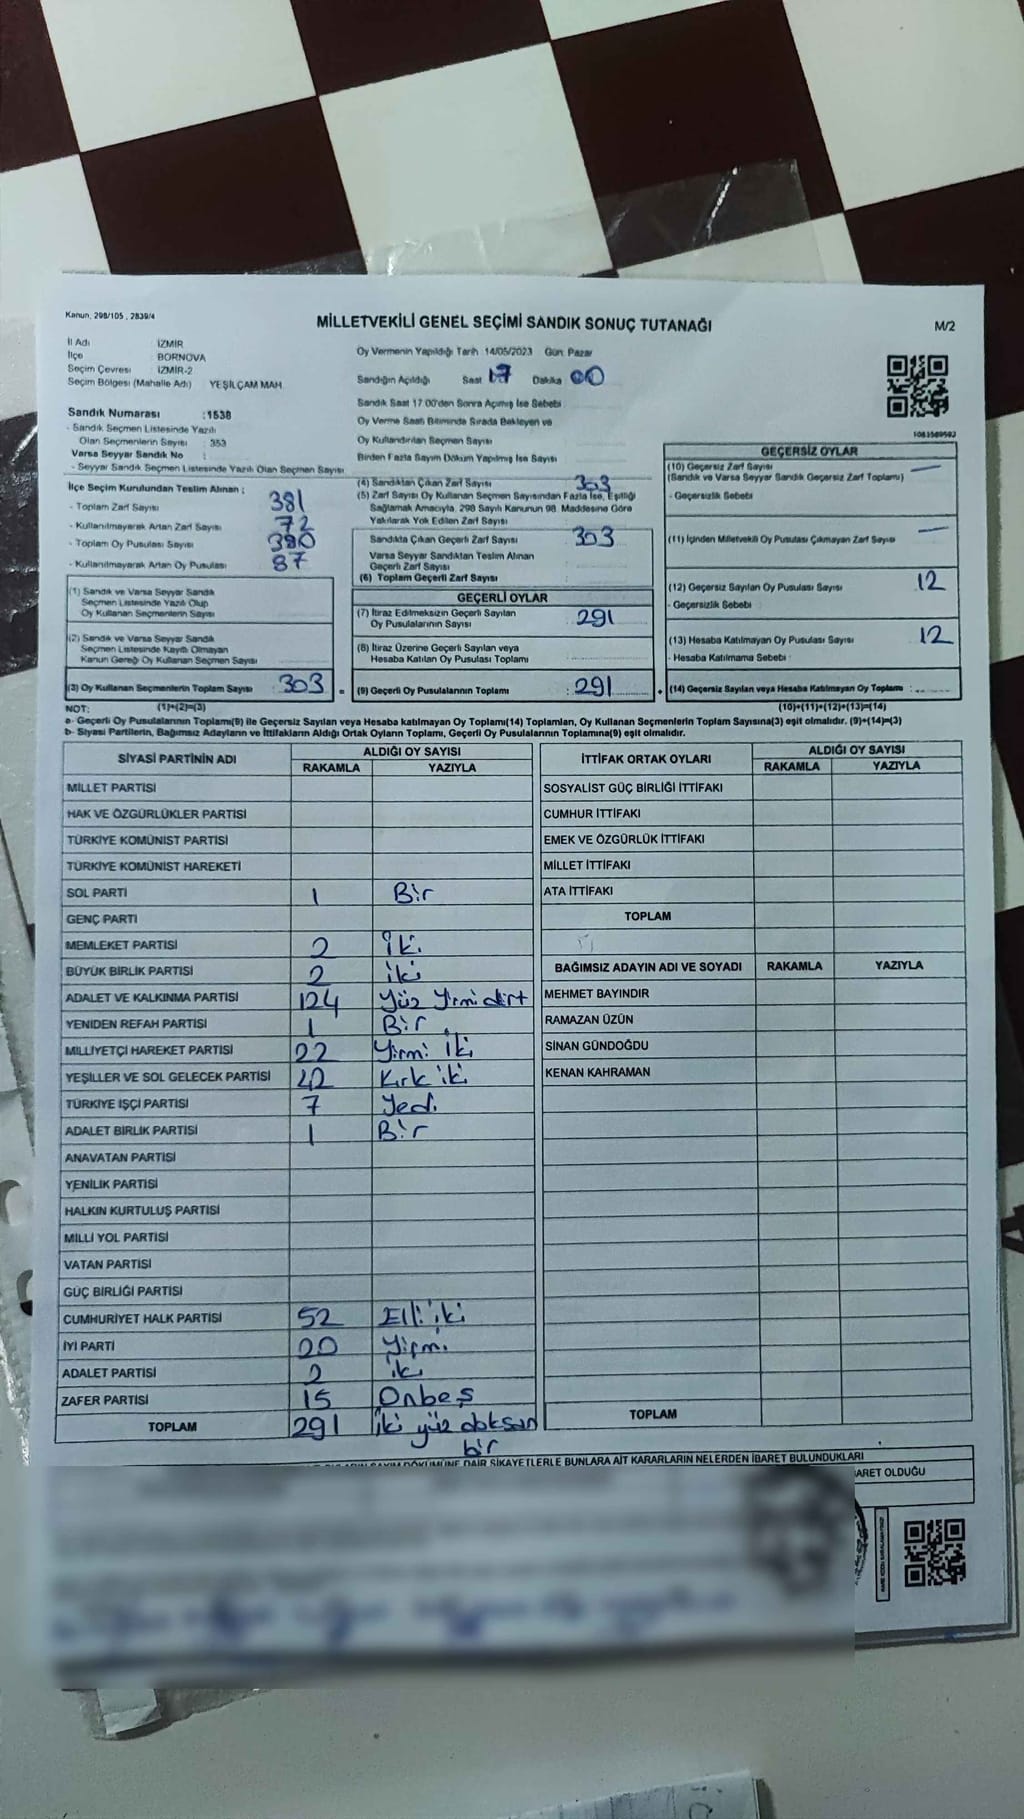 Kanun, 298/105, 2839/4
MİLLETVEKİLİ GENEL SEÇİMİ SANDIK SONUÇ TUTANAĞI
M/2
İl Adı İZMİR
İlçe BORNOVA
Seçim Çevresi : İZMİR-2
Seçim Bölgesi (Mahalle Adı) YEŞİLÇAM MAH.
Oy Vermenin Yapıldığı Tarih 14/05/2023 Gün: Pazar
Sandığın Açıldığı Saat 17 Dakika 00
Sandık Saat 17.00'den Sonra Açılmış İse Sebebi
Oy Verme Saati Bitiminde Sırada Bekleyen ve
Oy Kullandırılan Seçmen Sayısı
Birden Fazla Sayım Döküm Yapılmış İse Sayısı
Sandık Numarası :1538
- Sandık Seçmen Listesinde Yazılı
Olan Seçmenlerin Sayısı : 353
Varsa Seyyar Sandık No :
- Seyyar Sandık Seçmen Listesinde Yazılı Olan Seçmen Sayısı
İlçe Seçim Kurulundan Teslim Alınan ;
- Toplam Zarf Sayısı 381
- Kullanılmayarak Artan Zarf Sayısı 72
- Toplam Oy Pusulası Sayısı 390
- Kullanılmayarak Artan Oy Pusulası 87
(1) Sandık ve Varsa Seyyar Sandık
Seçmen Listesinde Yazılı Olup
Oy Kullanan Seçmenlerin Sayısı
(2) Sandık ve Varsa Seyyar Sandık
Seçmen Listesinde Kayıtlı Olmayan
Kanun Gereği Oy Kullanan Seçmen Sayısı
(3) Oy Kullanan Seçmenlerin Toplam Sayısı : 303
(4) Sandıktan Çıkan Zarf Sayısı 303
(5) Zarf Sayısı Oy Kullanan Seçmen Sayısından Fazla İse, Eşitliği
Sağlamak Amacıyla, 298 Sayılı Kanunun 98. Maddesine Göre
Yakılarak Yok Edilen Zarf Sayısı
Sandıkta Çıkan Geçerli Zarf Sayısı : 303
Varsa Seyyar Sandıktan Teslim Alınan
Geçerli Zarf Sayısı
(6) Toplam Geçerli Zarf Sayısı
GEÇERLİ OYLAR
(7) İtiraz Edilmeksizin Geçerli Sayılan
Oy Pusulalarının Sayısı : 291
(8) İtiraz Üzerine Geçerli Sayılan veya
Hesaba Katılan Oy Pusulası Toplamı
(9) Geçerli Oy Pusulalarının Toplamı : 291
GEÇERSİZ OYLAR
(10) Geçersiz Zarf Sayısı —
(Sandık ve Varsa Seyyar Sandık Geçersiz Zarf Toplamı)
- Geçersizlik Sebebi
(11) İçinden Milletvekili Oy Pusulası Çıkmayan Zarf Sayısı —
(12) Geçersiz Sayılan Oy Pusulası Sayısı 12
- Geçersizlik Sebebi
(13) Hesaba Katılmayan Oy Pusulası Sayısı 12
- Hesaba Katılmama Sebebi
(14) Geçersiz Sayılan veya Hesaba Katılmayan Oy Toplamı :
NOT: (1)+(2)=(3) (10)+(11)+(12)+(13)=(14)
a- Geçerli Oy Pusulalarının Toplamı(9) ile Geçersiz Sayılan veya Hesaba katılmayan Oy Toplamı(14) Toplamları, Oy Kullanan Seçmenlerin Toplam Sayısına(3) eşit olmalıdır. (9)+(14)=(3)
b- Siyasi Partilerin, Bağımsız Adayların ve İttifakların Aldığı Ortak Oyların Toplamı, Geçerli Oy Pusulalarının Toplamına(9) eşit olmalıdır.
SİYASİ PARTİNİN ADI ALDIĞI OY SAYISI
RAKAMLA YAZIYLA
MİLLET PARTİSİ
HAK VE ÖZGÜRLÜKLER PARTİSİ
TÜRKİYE KOMÜNİST PARTİSİ
TÜRKİYE KOMÜNİST HAREKETİ
SOL PARTİ 1 Bir
GENÇ PARTİ
MEMLEKET PARTİSİ 2 İki
BÜYÜK BİRLİK PARTİSİ 2 iki
ADALET VE KALKINMA PARTİSİ 124 Yüz Yirmi dört
YENİDEN REFAH PARTİSİ 1 Bir
MİLLİYETÇİ HAREKET PARTİSİ 22 Yirmi İki
YEŞİLLER VE SOL GELECEK PARTİSİ 42 Kırk iki
TÜRKİYE İŞÇİ PARTİSİ 7 Yedi
ADALET BİRLİK PARTİSİ 1 Bir
ANAVATAN PARTİSİ
YENİLİK PARTİSİ
HALKIN KURTULUŞ PARTİSİ
MİLLİ YOL PARTİSİ
VATAN PARTİSİ
GÜÇ BİRLİĞİ PARTİSİ
CUMHURİYET HALK PARTİSİ 52 Elli iki
İYİ PARTİ 20 Yirmi
ADALET PARTİSİ 2 iki
ZAFER PARTİSİ 15 Onbeş
TOPLAM 291 İki yüz doksan
bir
İTTİFAK ORTAK OYLARI ALDIĞI OY SAYISI
RAKAMLA YAZIYLA
SOSYALİST GÜÇ BİRLİĞİ İTTİFAKI
CUMHUR İTTİFAKI
EMEK VE ÖZGÜRLÜK İTTİFAKI
MİLLET İTTİFAKI
ATA İTTİFAKI
TOPLAM
BAĞIMSIZ ADAYIN ADI VE SOYADI RAKAMLA YAZIYLA
MEHMET BAYINDIR
RAMAZAN ÜZÜN
SİNAN GÜNDOĞDU
KENAN KAHRAMAN
TOPLAM
DÖKÜMÜNE DAİR ŞİKAYETLERLE BUNLARA AİT KARARLARIN NELERDEN İBARET BULUNDUKLARI
BARET OLDUĞU